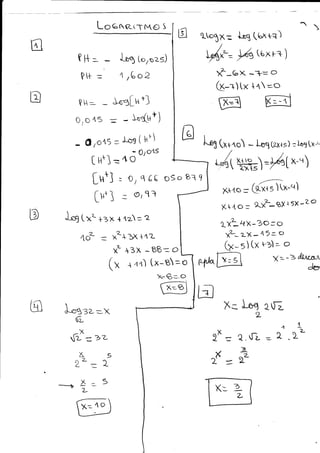 LOGARITMOS
1
PH = - log (0,025)
PH = 1,602
2
PH = - log[H⁺]
0,015 = - log(H⁺)
- 0,015 = log (H⁺)
[H⁺] = 10^-0,015
[H⁺] = 0,966 050 879
[H⁺] = 0,97
3
log (x² + 3x + 12) = 2
10² = x² + 3x + 12
x² + 3x - 88 = 0
(x + 11) (x - 8) = 0
x - 8 = 0
x = 8
4
log√2 32 = x
√2^x = 32
2^(x/2) = 2^5
→ x/2 = 5
x = 10
5
2log x = log (6x+7)
log x² = log (6x+7)
x² - 6x - 7 = 0
(x-7)(x+1) = 0
x = 7 x = -1
6
log (x+10) - log (2x+5) = log (x-
log( x+10 / 2x+5 ) = log( x-4)
x+10 = (2x+5)(x-4)
x+10 = 2x² - 8x + 5x - 20
2x² - 4x - 30 = 0
x² - 2x - 15 = 0
(x-5)(x+3) = 0
Rpta x = 5 x = -3
7
x = log₂ 2√2
2^x = 2.√2 = 2¹.2^(1/2)
2^x = 2^(3/2)
x = 3/2